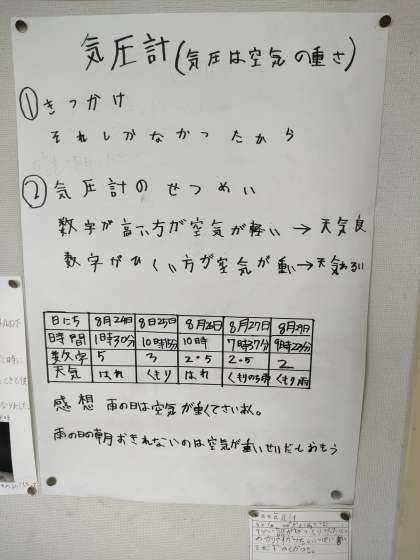 気圧計(気圧は空気の重さ)
①きっかけ
それしかなかったから
②気圧計のせつめい
数字が高い方が空気が軽い→天気良
数字がひくい方が空気が重い→天気わるい
日にち 8月24日 8月25日 8月26日 8月27日 8月29日
時間 1時30分 10時15分 10時 7時37分 9時22分
数字 5 3 2.5 2.5 2
天気 はれ くもり はれ くもりのち雨 くもり雨
感想 雨の日は空気が重くてさいあく。
雨の日の朝おきれないのは空気が重いせいだとおもう